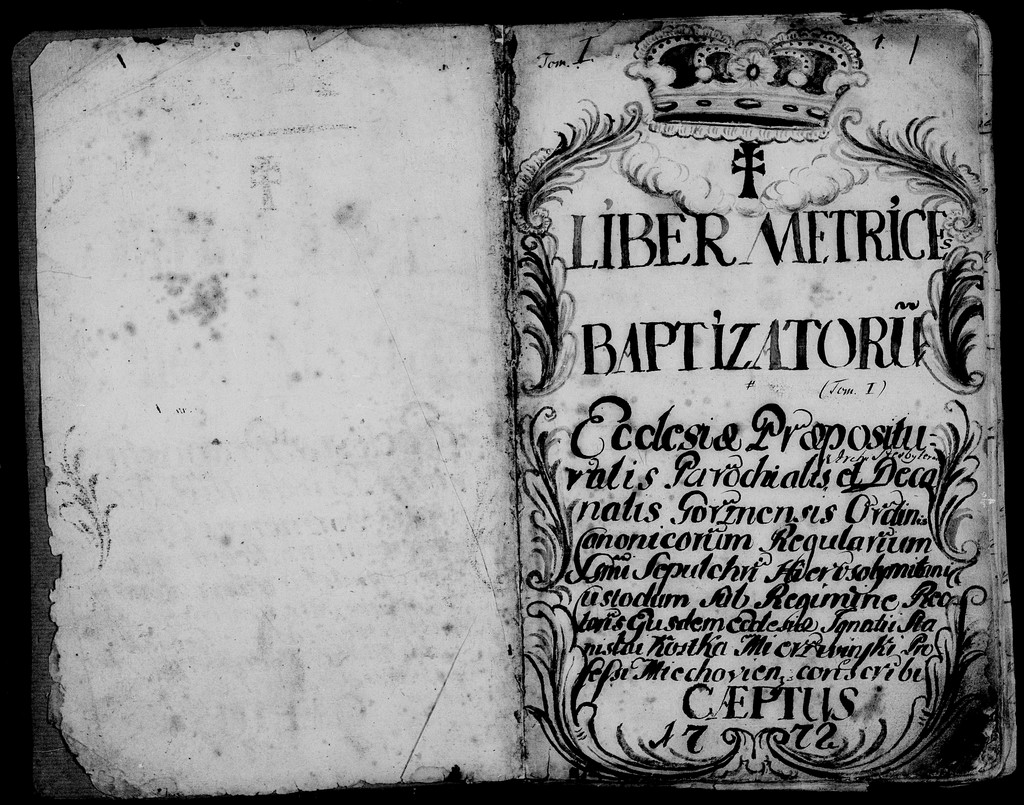 Tom. I 1.
LIBER METRICES
BAPTIZATORŨ
(Tom. I)
Ecclesiæ Præpositu-
ralis Parochialis, et Deca
& Archy Presbyteru
natis Gorznensis Ordinis
Canonicorum Regularium
Sepulchri Hierosolymitani
Custodum sub Regimine Rec-
toris Ejusdem Ecclesiæ Ignatii Sta
nislai Kostka Mierzwinski Pro
fessi Miechovien, conscribi
CÆPTUS
1772